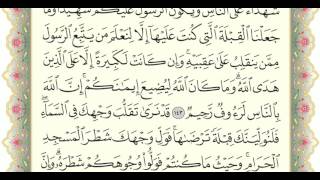 شُهَدَآءَ عَلَى ٱلنَّاسِ وَيَكُونَ ٱلرَّسُولُ عَلَيْكُمْ شَهِيدًا وَمَا
جَعَلْنَا ٱلْقِبْلَةَ ٱلَّتِى كُنتَ عَلَيْهَآ إِلَّا لِنَعْلَمَ مَن يَتَّبِعُ ٱلرَّسُولَ
مِمَّن يَنقَلِبُ عَلَىٰ عَقِبَيْهِ وَإِن كَانَتْ لَكَبِيرَةً إِلَّا عَلَى ٱلَّذِينَ
هَدَى ٱللَّهُ وَمَا كَانَ ٱللَّهُ لِيُضِيعَ إِيمَٰنَكُمْ إِنَّ ٱللَّهَ
بِٱلنَّاسِ لَرَءُوفٌ رَّحِيمٌ ١٤٣ قَدْ نَرَىٰ تَقَلُّبَ وَجْهِكَ فِى ٱلسَّمَآءِ
فَلَنُوَلِّيَنَّكَ قِبْلَةً تَرْضَىٰهَا فَوَلِّ وَجْهَكَ شَطْرَ ٱلْمَسْجِدِ
ٱلْحَرَامِ وَحَيْثُ مَا كُنتُمْ فَوَلُّوا۟ وُجُوهَكُمْ شَطْرَهُۥ وَإِنَّ